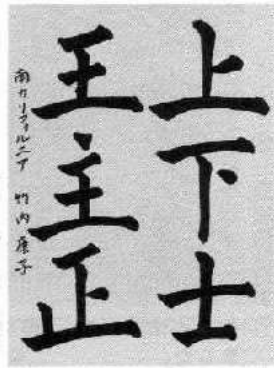 上下士
王主正
南カリフォルニア 竹内